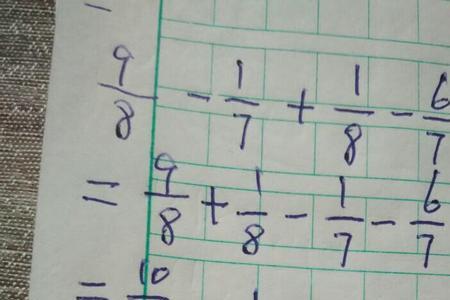 9/8 - 1/7 + 1/8 - 6/7
= 9/8 + 1/8 - 1/7 - 6/7
= 10